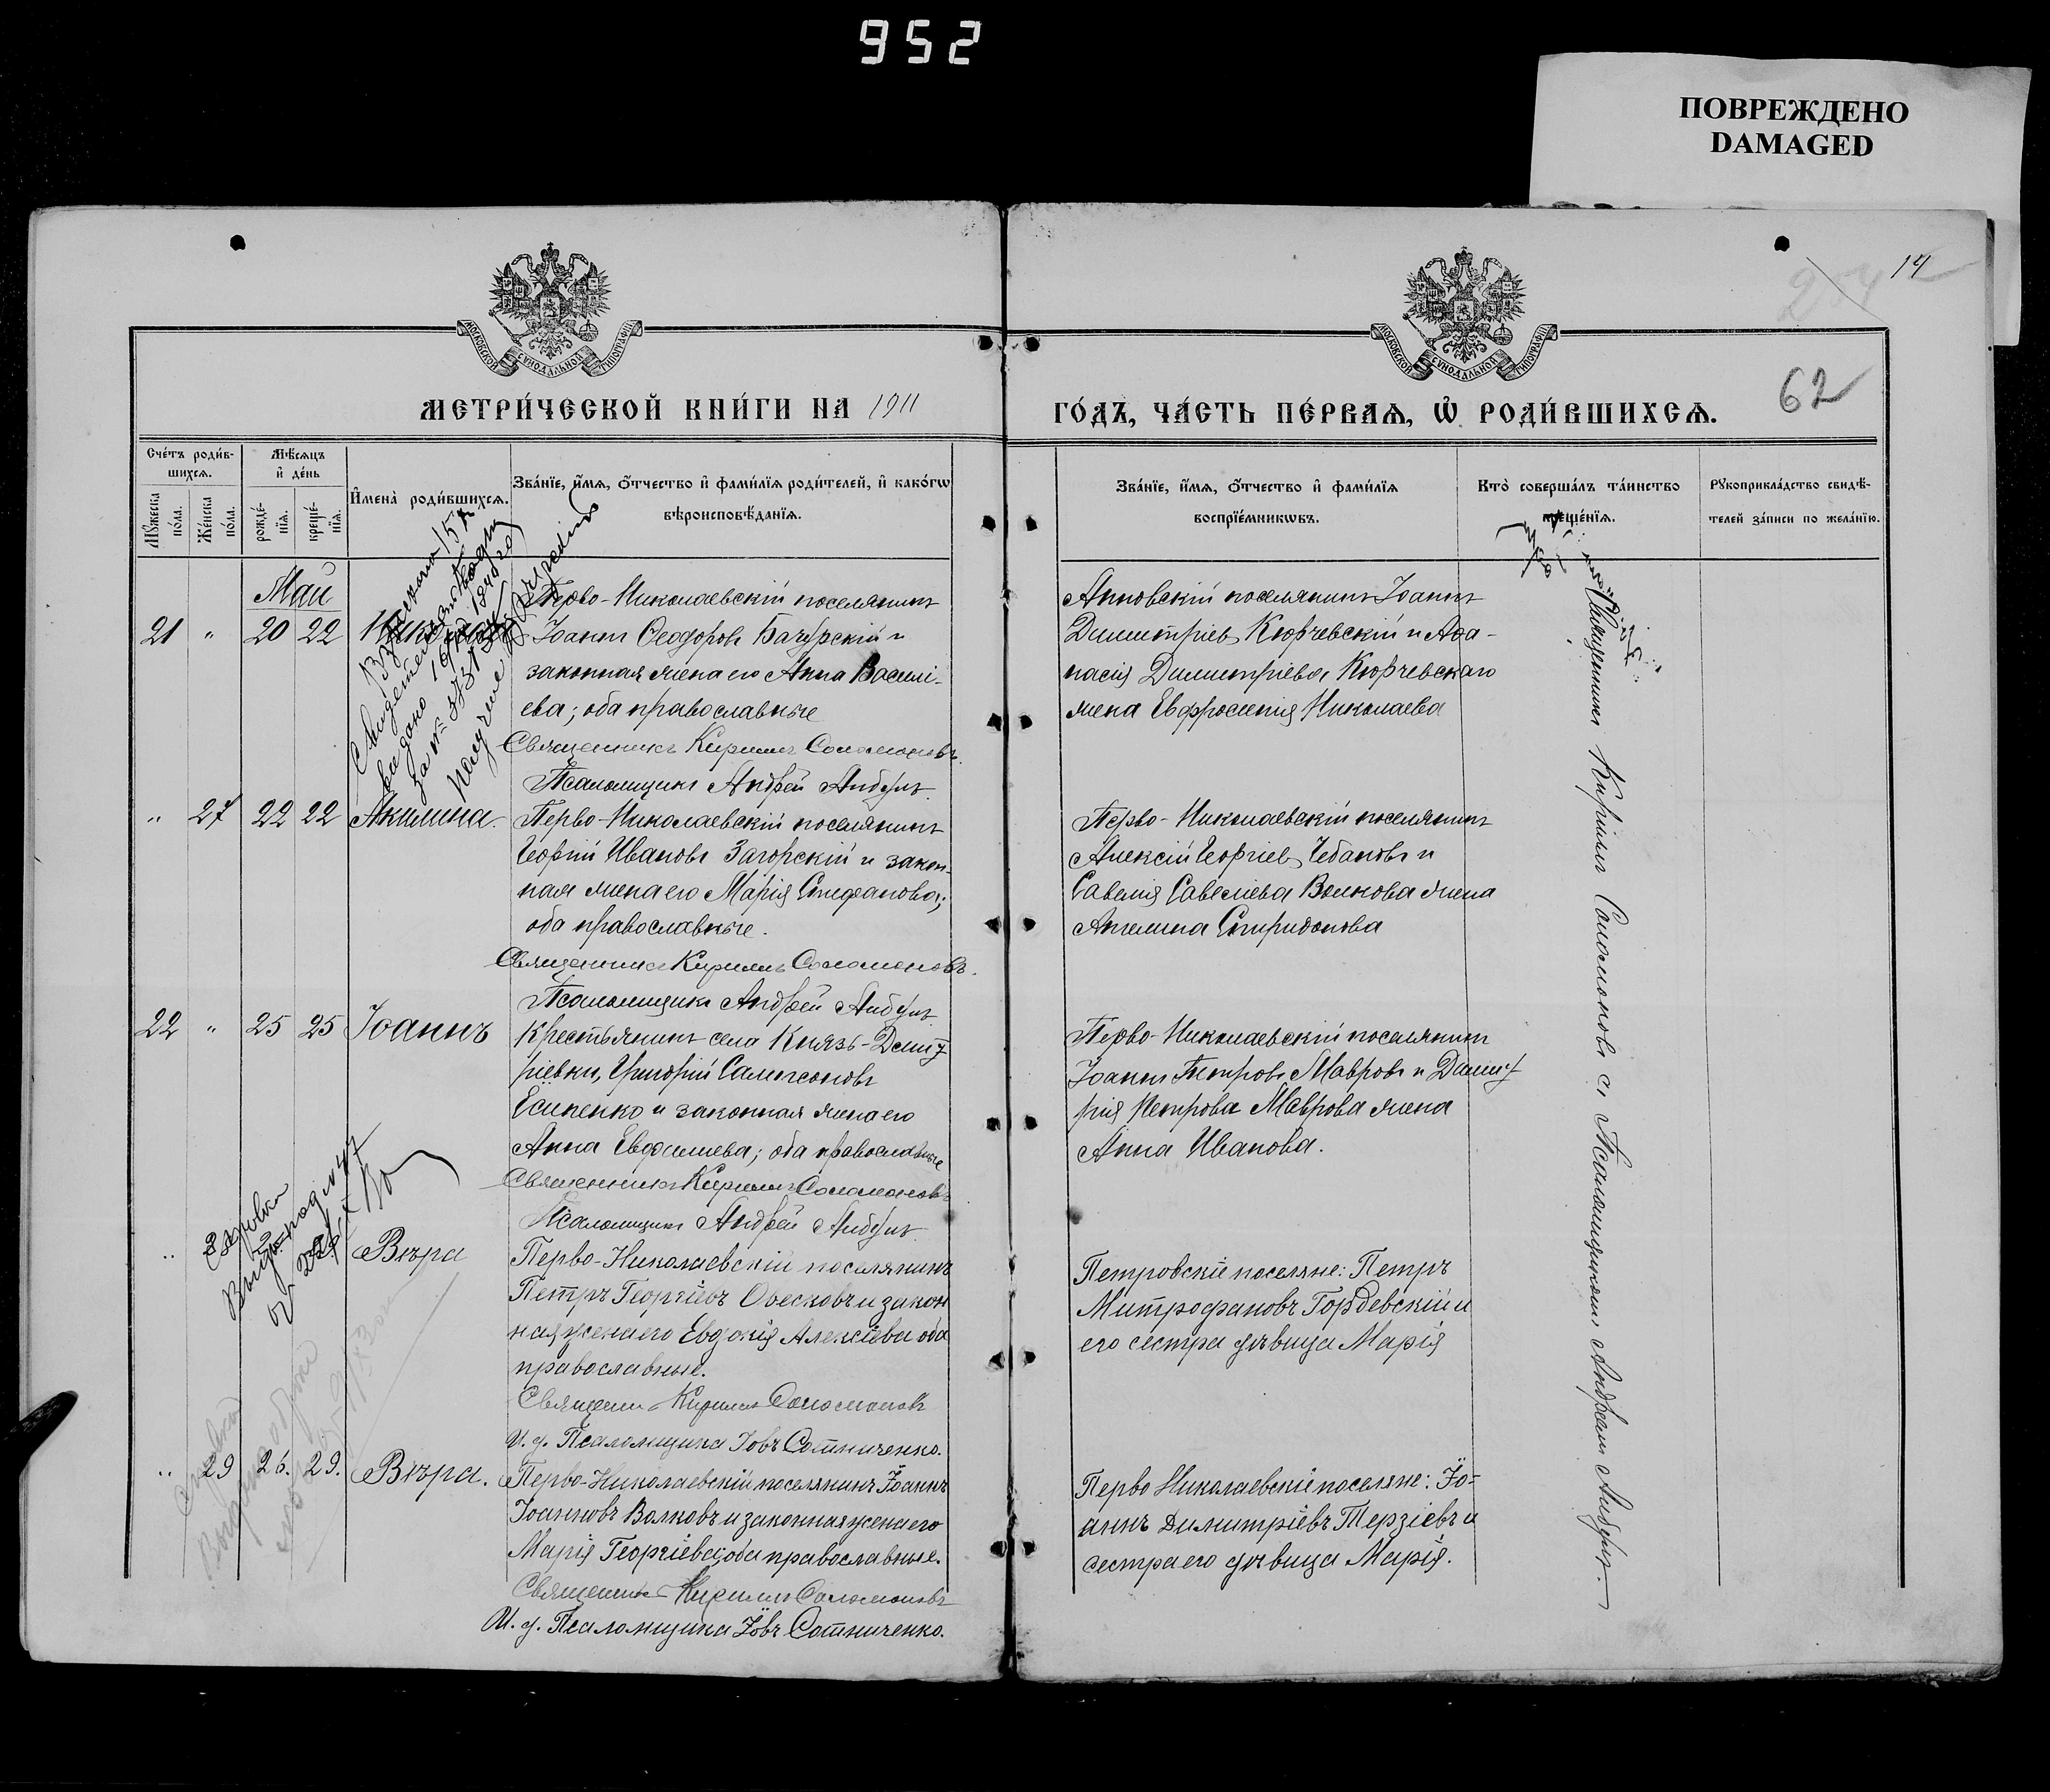 952
ПОВРЕЖДЕНО
DAMAGED
14
62
МОСКОВСКОЙ СѴНОДАЛЬНОЙ ТИПОГРАФІИ
МОСКОВСКОЙ СѴНОДАЛЬНОЙ ТИПОГРАФІИ
МЕТРИ́ЧЕСКОЙ КНИ́ГИ НА 1911
ГО́ДЪ, ЧА́СТЬ ПЕ́РВАѦ, Ѡ҆ РОДИ́ВШИХСѦ.
Сче́тъ роди́в-
шихсѧ.
Мѣ́сѧцъ
и҆ де́нь
Мꙋ́жеска
по́ла.
Же́нска
по́ла.
рожде́-
нїѧ.
креще́-
нїѧ.
И҆мена̀ роди́вшихсѧ.
Зва́нїе, и҆́мѧ, ѻ҆́тчество и҆ фами́лїѧ роди́телей, и҆ како́гѡ
вѣроисповѣ́данїѧ.
Зва́нїе, и҆́мѧ, ѻ҆́тчество и҆ фами́лїѧ
воспрїе́мникѡвъ.
Кто̀ соверша́лъ та́инство
креще́нїѧ.
Рꙋкоприкла́дство свидѣ́-
телей за́писи по жела́нїю.
Май
21 " 20 22
Перво-Николаевскій поселянинъ
Іоаннъ Ѳеодоровъ Бачурскій и
законная жена его Анна Василі-
ева; оба православные
Священникъ Кириллъ Соломоновъ.
Псаломщикъ Андрей Анбулъ.
Анновскій поселянинъ Іоаннъ
Димитріевъ Кюрчевскій и Аѳа-
насія Димитріева Кюрчевскаго
жена Евфросинія Николаева
" 27 22 22 Акилина.
Перво-Николаевскій поселянинъ
Георгій Ивановъ Загорскій и закон-
ная жена его Марія Стефанова;
оба православные.
Священникъ Кириллъ Соломоновъ.
Псаломщикъ Андрей Анбулъ.
Перво-Николаевскій поселянинъ
Алексій Георгіевъ Чебановъ и
Савелія Савеліева Волкова жена
Ангелина Спиридонова
22 " 25 25 Іоаннъ
Крестьянинъ села Князь-Димит-
ріевки, Григорій Самсоновъ
Есипенко и законная жена его
Анна Евфимиева; оба православные
Священникъ Кириллъ Соломоновъ
Псаломщикъ Андрей Анбулъ.
Перво-Николаевскій поселянинъ
Іоаннъ Петровъ Мавровъ и Димит-
рія Петрова Маврова жена
Анна Иванова.
" Вѣра
Перво-Николаевскій поселянинъ
Петръ Георгіевъ Овесковъ и закон
ная жена его Евдокія Алексіева оба
православные.
Священникъ Кириллъ Соломоновъ
И. д. Псаломщика Іовъ Сотниченко.
Петровскіе поселяне: Петръ
Митрофановъ Гордевскій и
его сестра дѣвица Марія
" 29 26. 29. Вѣра.
Перво-Николаевскій поселянинъ Іоаннъ
Іоанновъ Волковъ и законная жена его
Марія Георгіева; оба православные.
Священникъ Кириллъ Соломоновъ
И. д. Псаломщика Іовъ Сотниченко.
Перво Николаевскіе поселяне: Іо-
аннъ Димитріевъ Терзіевъ и
сестра его дѣвица Марія.
Священникъ Кириллъ Соломоновъ съ Псаломщикомъ Андреемъ Анбулъ.